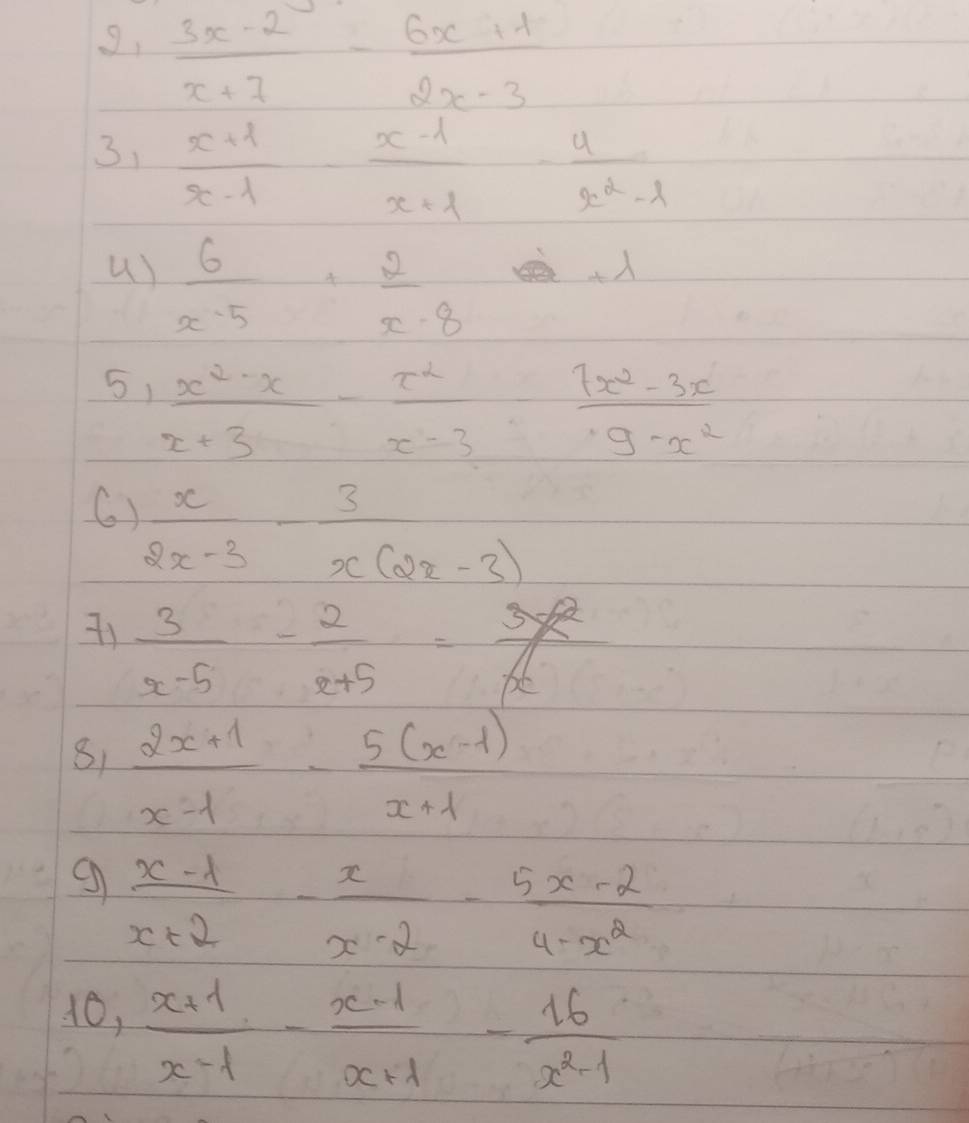 2, (3x-2)/(x+7) - (6x+1)/(2x-3)
3, (x+1)/(x-1) - (x-1)/(x+1) - 4/(x²-1)
4) 6/(x-5) + 2/(x-8) +1
5, (x²-x)/(x+3) - x²/(x-3) - (7x²-3x)/(9-x²)
6) x/(2x-3) - 3/(x(2x-3))
7) 3/(x-5) - 2/(x+5) =
8, (2x+1)/(x-1) - 5(x-1)/(x+1)
9) (x-1)/(x+2) - x/(x-2) - (5x-2)/(4-x²)
10, (x+1)/(x-1) - (x-1)/(x+1) - 16/(x²-1)